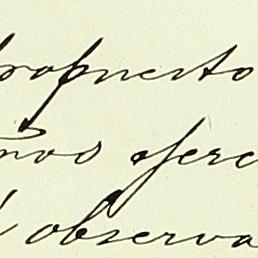 propuesto
mos ejerc
l observa